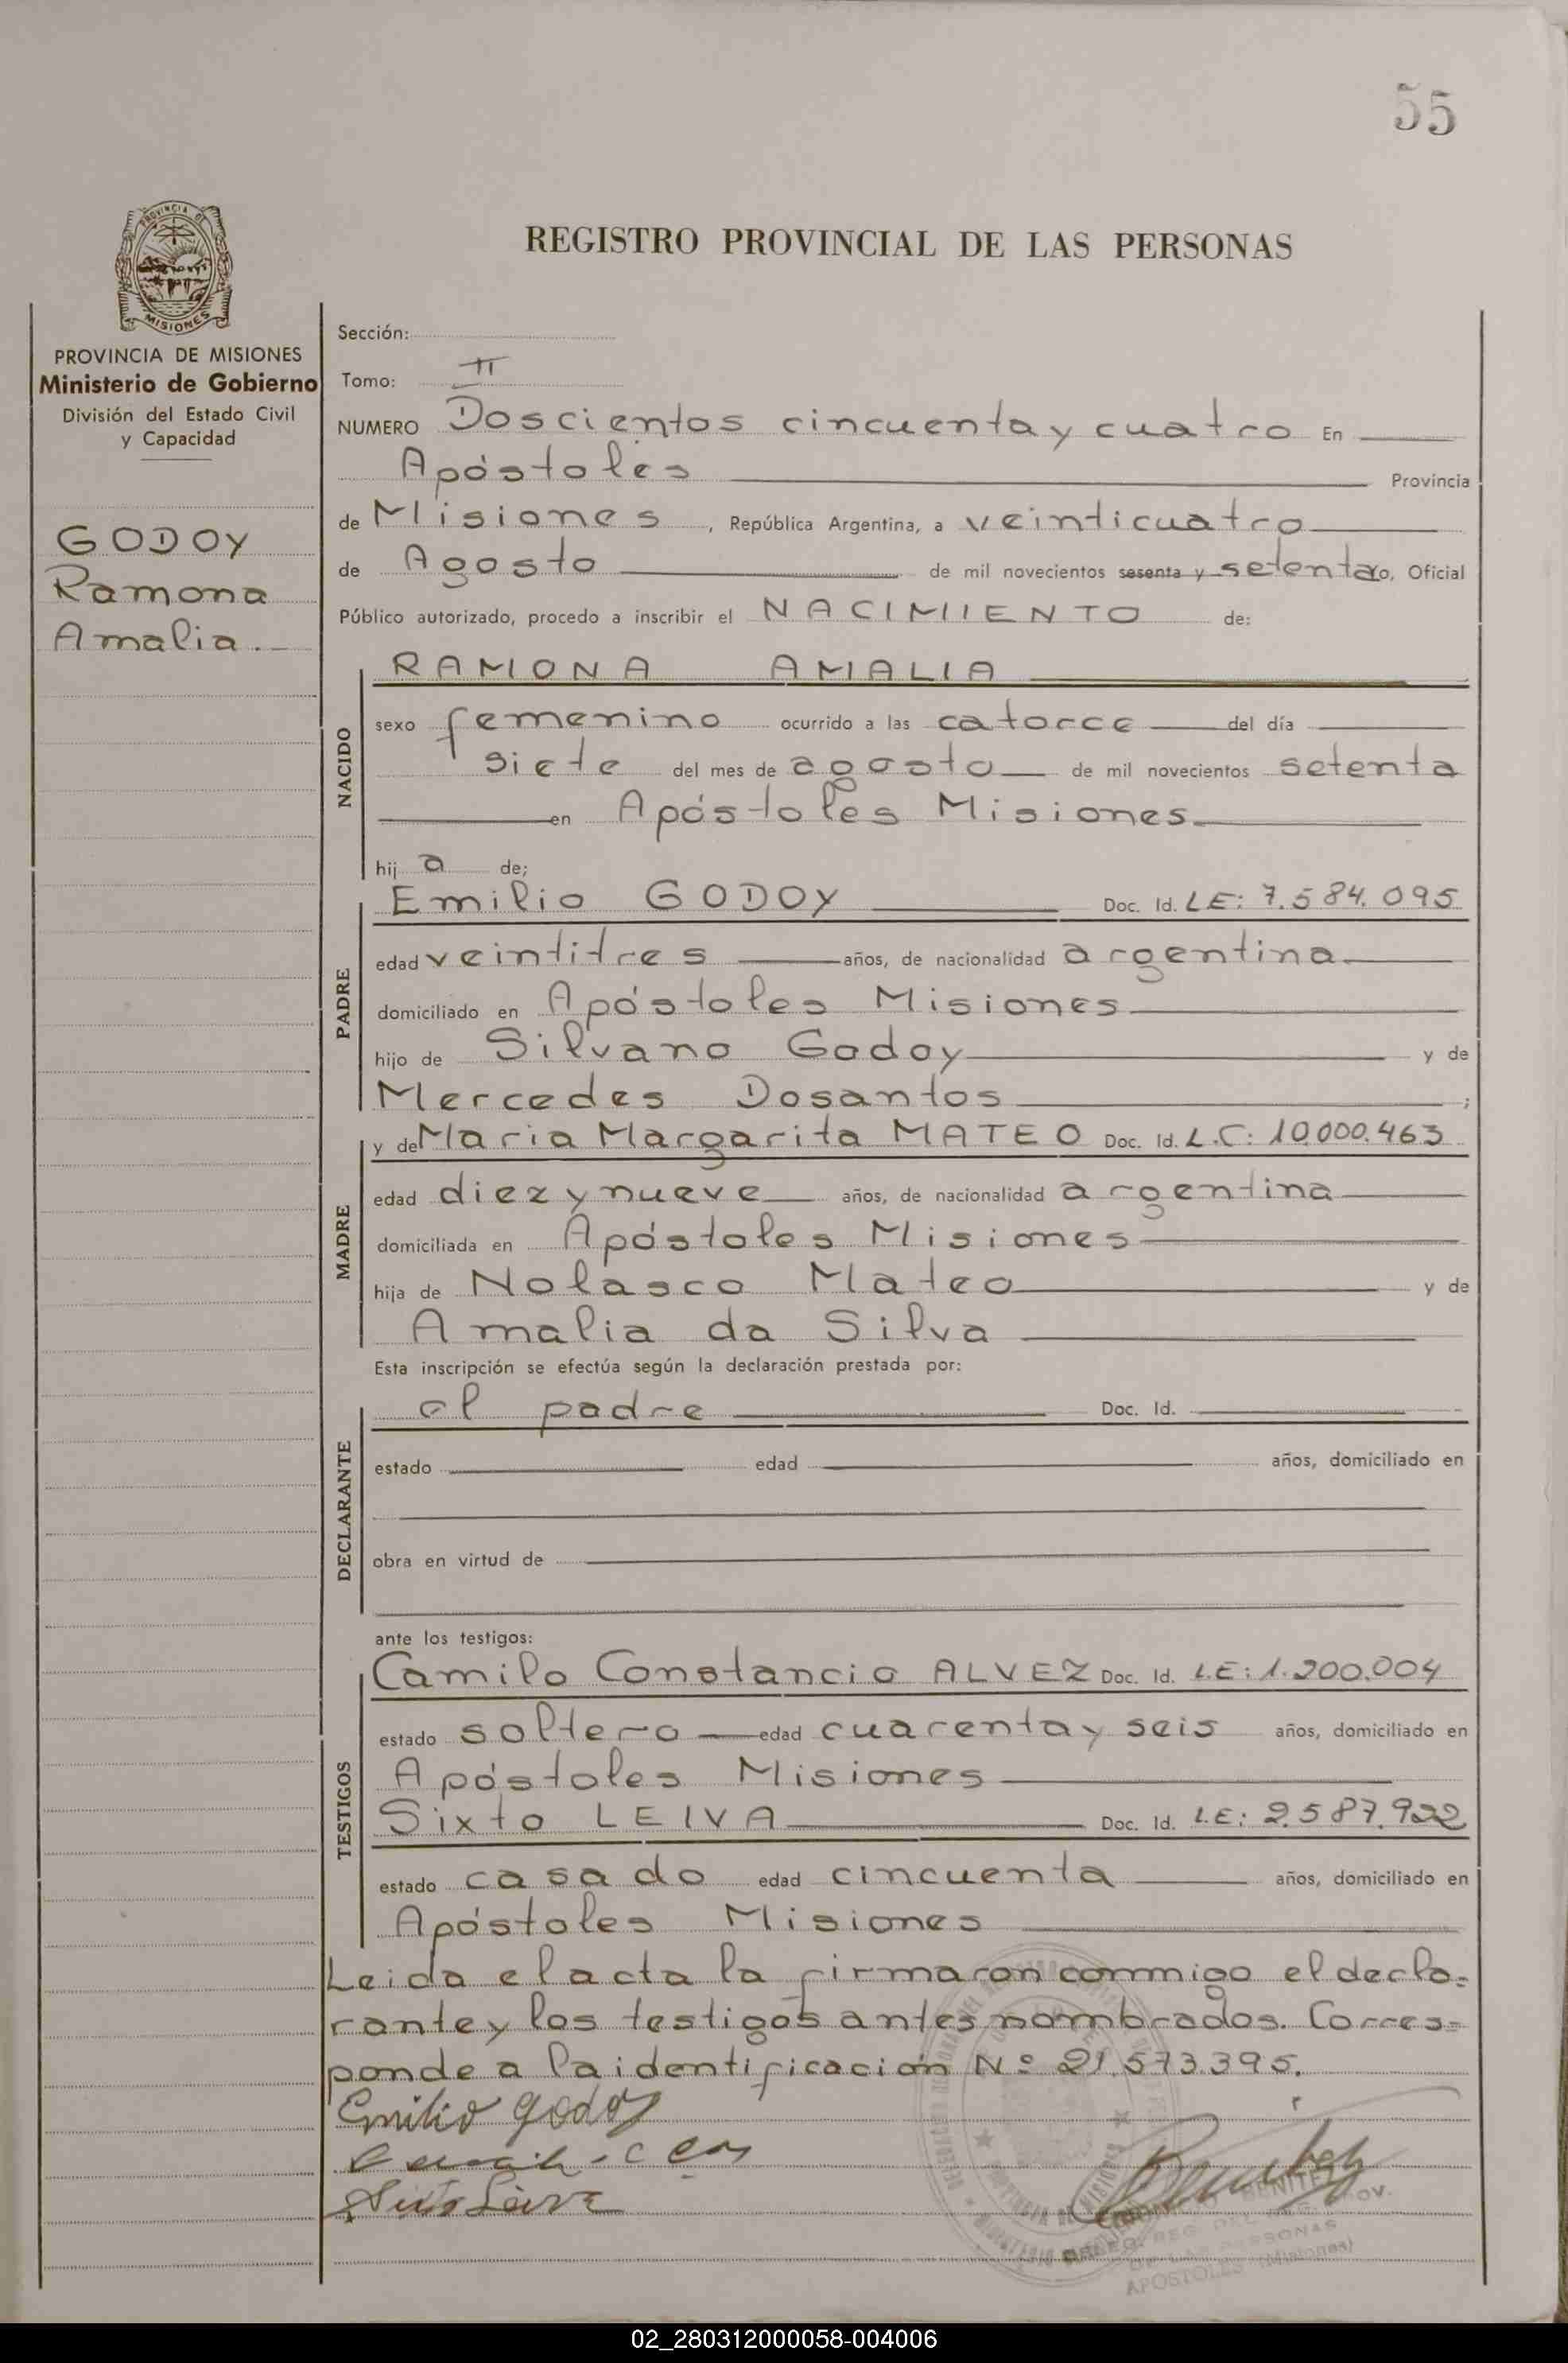 55
PROVINCIA DE
MISIONES
REGISTRO PROVINCIAL DE LAS PERSONAS
PROVINCIA DE MISIONES
Ministerio de Gobierno
División del Estado Civil
y Capacidad
GODOY
Ramona
Amalia.
Sección:
Tomo: II
NUMERO Doscientos cincuenta y cuatro En
Apóstoles Provincia
de Misiones, República Argentina, a veinticuatro
de Agosto de mil novecientos sesenta y setenta yo, Oficial
Público autorizado, procedo a inscribir el NACIMIENTO de:
NACIDO
RAMONA AMALIA
sexo femenino ocurrido a las catorce del día
siete del mes de agosto de mil novecientos setenta
en Apóstoles Misiones
hij a de;
PADRE
Emilio GODOY Doc. Id. LE: 7.584.095
edad veintitres años, de nacionalidad argentina
domiciliado en Apóstoles Misiones
hijo de Silvano Godoy y de
Mercedes Dosantos ;
MADRE
y de Maria Margarita MATEO Doc. Id. L.C: 10.000.463
edad diez y nueve años, de nacionalidad argentina
domiciliada en Apóstoles Misiones
hija de Nolasco Mateo y de
Amalia da Silva
Esta inscripción se efectúa según la declaración prestada por:
DECLARANTE
el padre Doc. Id.
estado edad años, domiciliado en
obra en virtud de
ante los testigos:
TESTIGOS
Camilo Constancio ALVEZ Doc. Id. L.E: 1.200.004
estado soltero edad cuarenta y seis años, domiciliado en
Apóstoles Misiones
Sixto LEIVA Doc. Id. L.E: 2.587.922
estado casado edad cincuenta años, domiciliado en
Apóstoles Misiones
Leida el acta la firmaron conmigo el decla=
rante y los testigos antes nombrados. Corres=
ponde a la identificación Nº 21.573.395.
Emilio Godoy
Sixto Leiva
BENITEZ
DE LAS PERSONAS
APOSTOLES (Misiones)
02_280312000058-004006